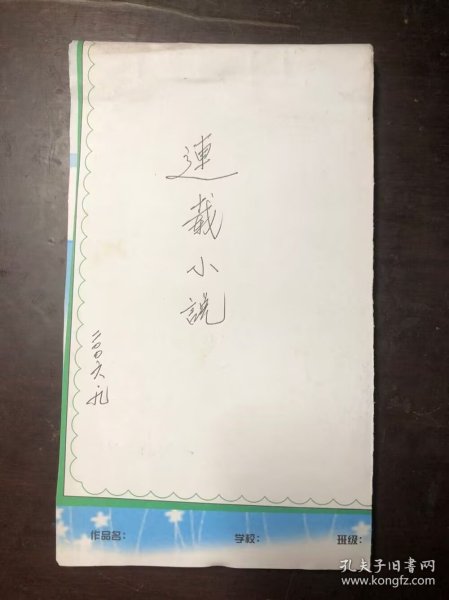 連載小說
二〇〇六.九
作品名：
学校：
班级：
孔夫子旧书网
www.kongfz.com